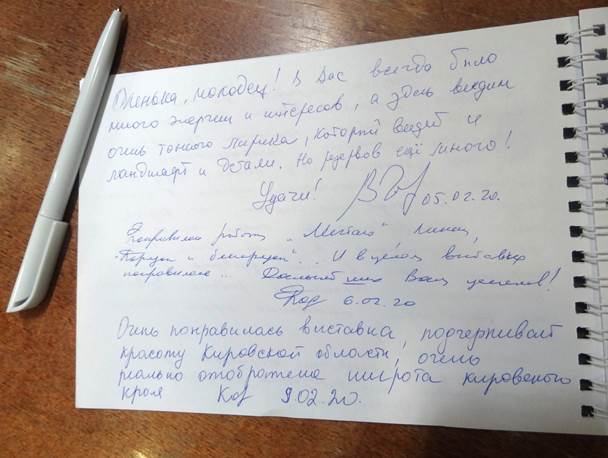 Оленька, молодец! В Вас всегда было
много энергии и интересов, а здесь виден
очень тонкого лирика, который видит и
ландшафт и детали. Но резервов ещё много!
Удачи! 05.02.20.
Понравились работы
и И в целом выставка
понравилась... Вам успехов!
6.02.20
Очень понравилась выставка, подчерпивает
красоту Кировской области, очень
реально отображена широта кировского
края 9.02.20.